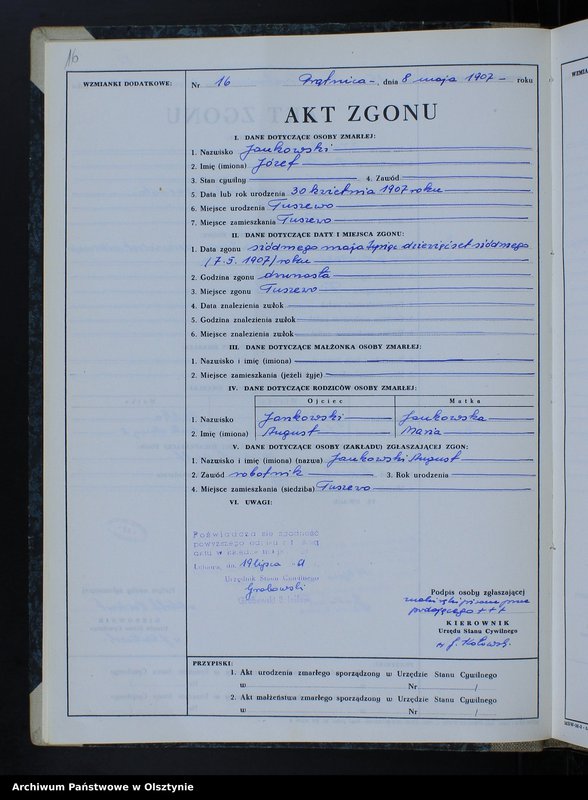 16
WZMIANKI DODATKOWE:
Nr 16 Prątnica -, dnia 8 maja 1907 - roku
AKT ZGONU
I. DANE DOTYCZĄCE OSOBY ZMARŁEJ:
1. Nazwisko Jankowski
2. Imię (imiona) Józef
3. Stan cywilny 4. Zawód
5. Data lub rok urodzenia 30 kwietnia 1907 roku
6. Miejsce urodzenia Tuszewo
7. Miejsce zamieszkania Tuszewo
II. DANE DOTYCZĄCE DATY I MIEJSCA ZGONU:
1. Data zgonu siódmego maja tysiąc dziewięćset siódmego
/7.5.1907/ roku
2. Godzina zgonu dwunasta
3. Miejsce zgonu Tuszewo
4. Data znalezienia zwłok
5. Godzina znalezienia zwłok
6. Miejsce znalezienia zwłok
III. DANE DOTYCZĄCE MAŁŻONKA OSOBY ZMARŁEJ:
1. Nazwisko i imię (imiona)
2. Miejsce zamieszkania (jeżeli żyje)
IV. DANE DOTYCZĄCE RODZICÓW OSOBY ZMARŁEJ:
Ojciec Matka
1. Nazwisko Jankowski Jankowska
2. Imię (imiona) August Maria
V. DANE DOTYCZĄCE OSOBY (ZAKŁADU) ZGŁASZAJĄCEJ ZGON:
1. Nazwisko i imię (imiona) (nazwa) Jankowski August
2. Zawód robotnik 3. Rok urodzenia
4. Miejsce zamieszkania (siedziba) Tuszewo
VI. UWAGI:
Poświadcza się zgodność
powyższego
aktu w
dn. 19 lipca
Urzędnik Stanu Cywilnego
Grabowski
Podpis osoby zgłaszającej
znaki ręką pisane przez
podającego +++
KIEROWNIK
Urzędu Stanu Cywilnego
PRZYPISKI:
1. Akt urodzenia zmarłego sporządzony w Urzędzie Stanu Cywilnego
w Nr /
2. Akt małżeństwa zmarłego sporządzony w Urzędzie Stanu Cywilnego
w Nr /
Archiwum Państwowe w Olsztynie